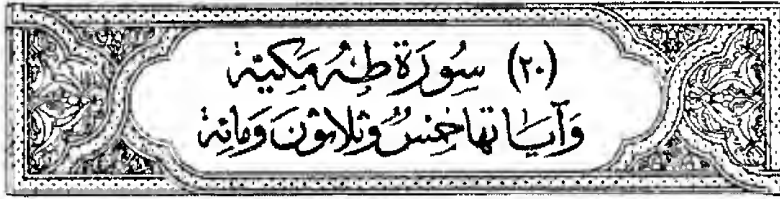 (٢٠) سُورَة طٰهٰ مَكيّة
وَآيَاتهَا خمْسٌ وَثلاثونَ وَمائة